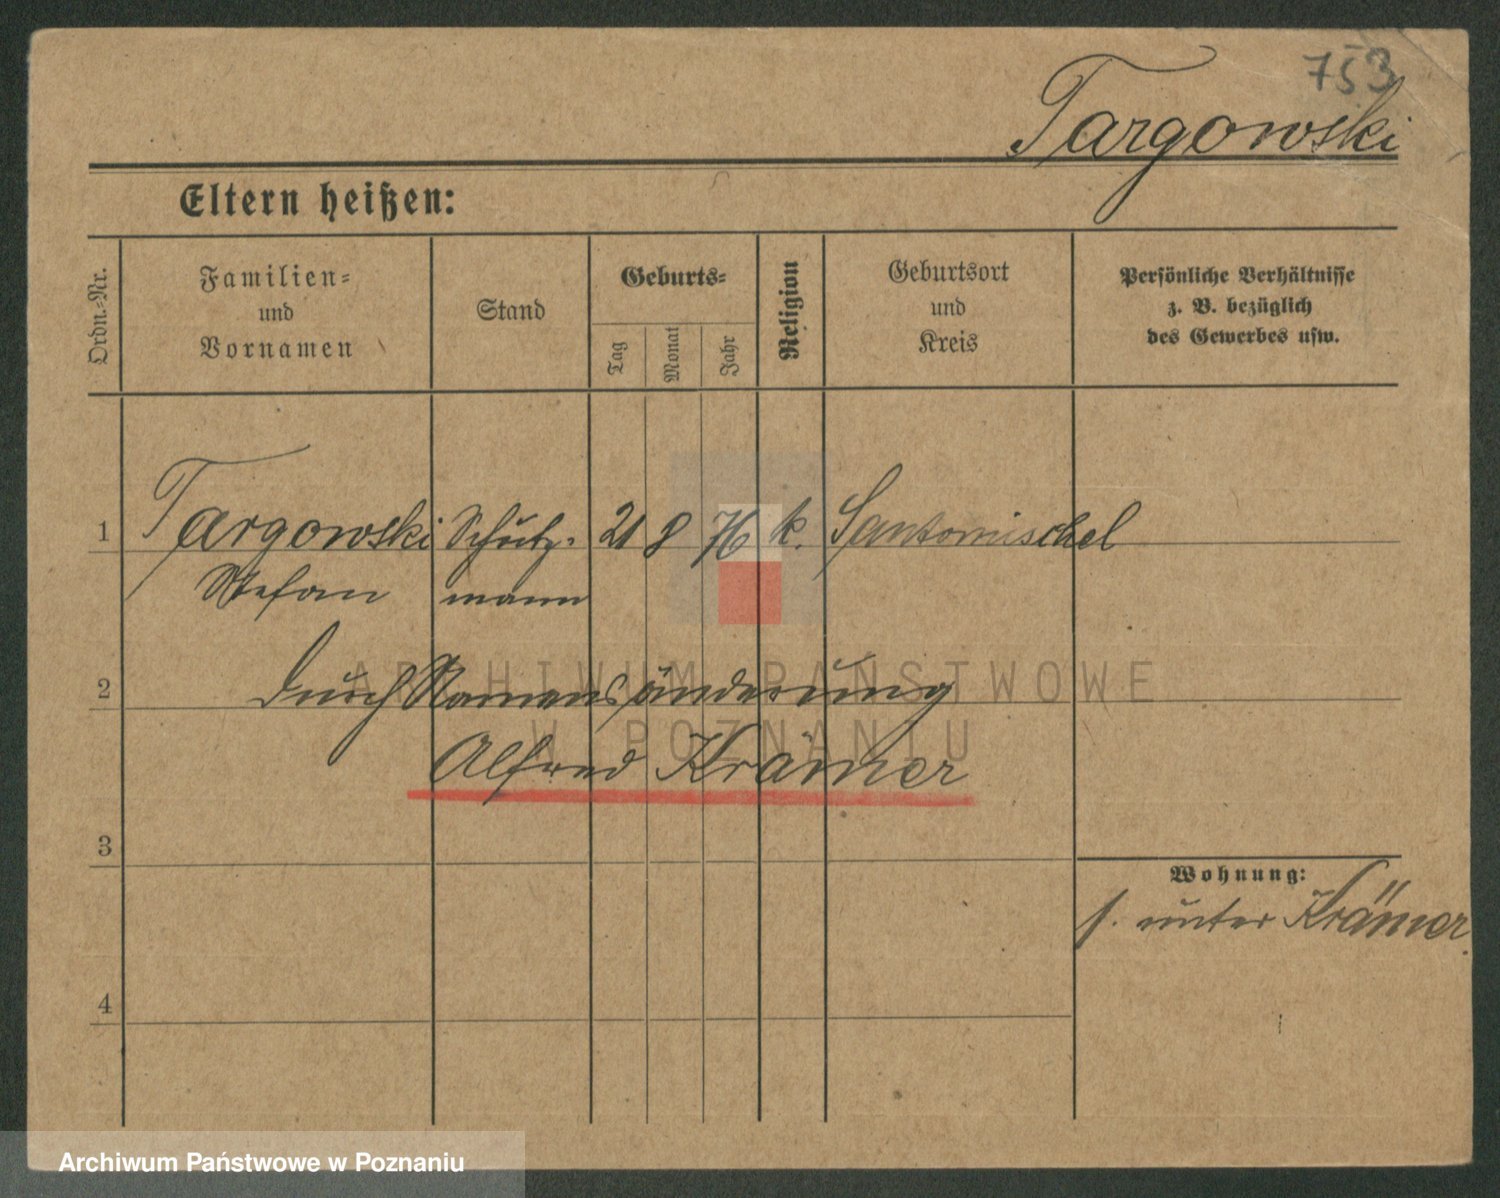 753
Targowski
Eltern heißen:
Ordn.-Nr.
Familien-
und
Vornamen
Stand
Geburts-
Tag
Monat
Jahr
Religion
Geburtsort
und
Kreis
Persönliche Verhältnisse
z. B. bezüglich
des Gewerbes usw.
1 Targowski Schutz- 21 8 76 k. Santomischel
Stefan mann
2 durch Namensänderung
Alfred Krämer
3
Wohnung:
s. unter Krämer.
4
ARCHIWUM PAŃSTWOWE
W POZNANIU
Archiwum Państwowe w Poznaniu